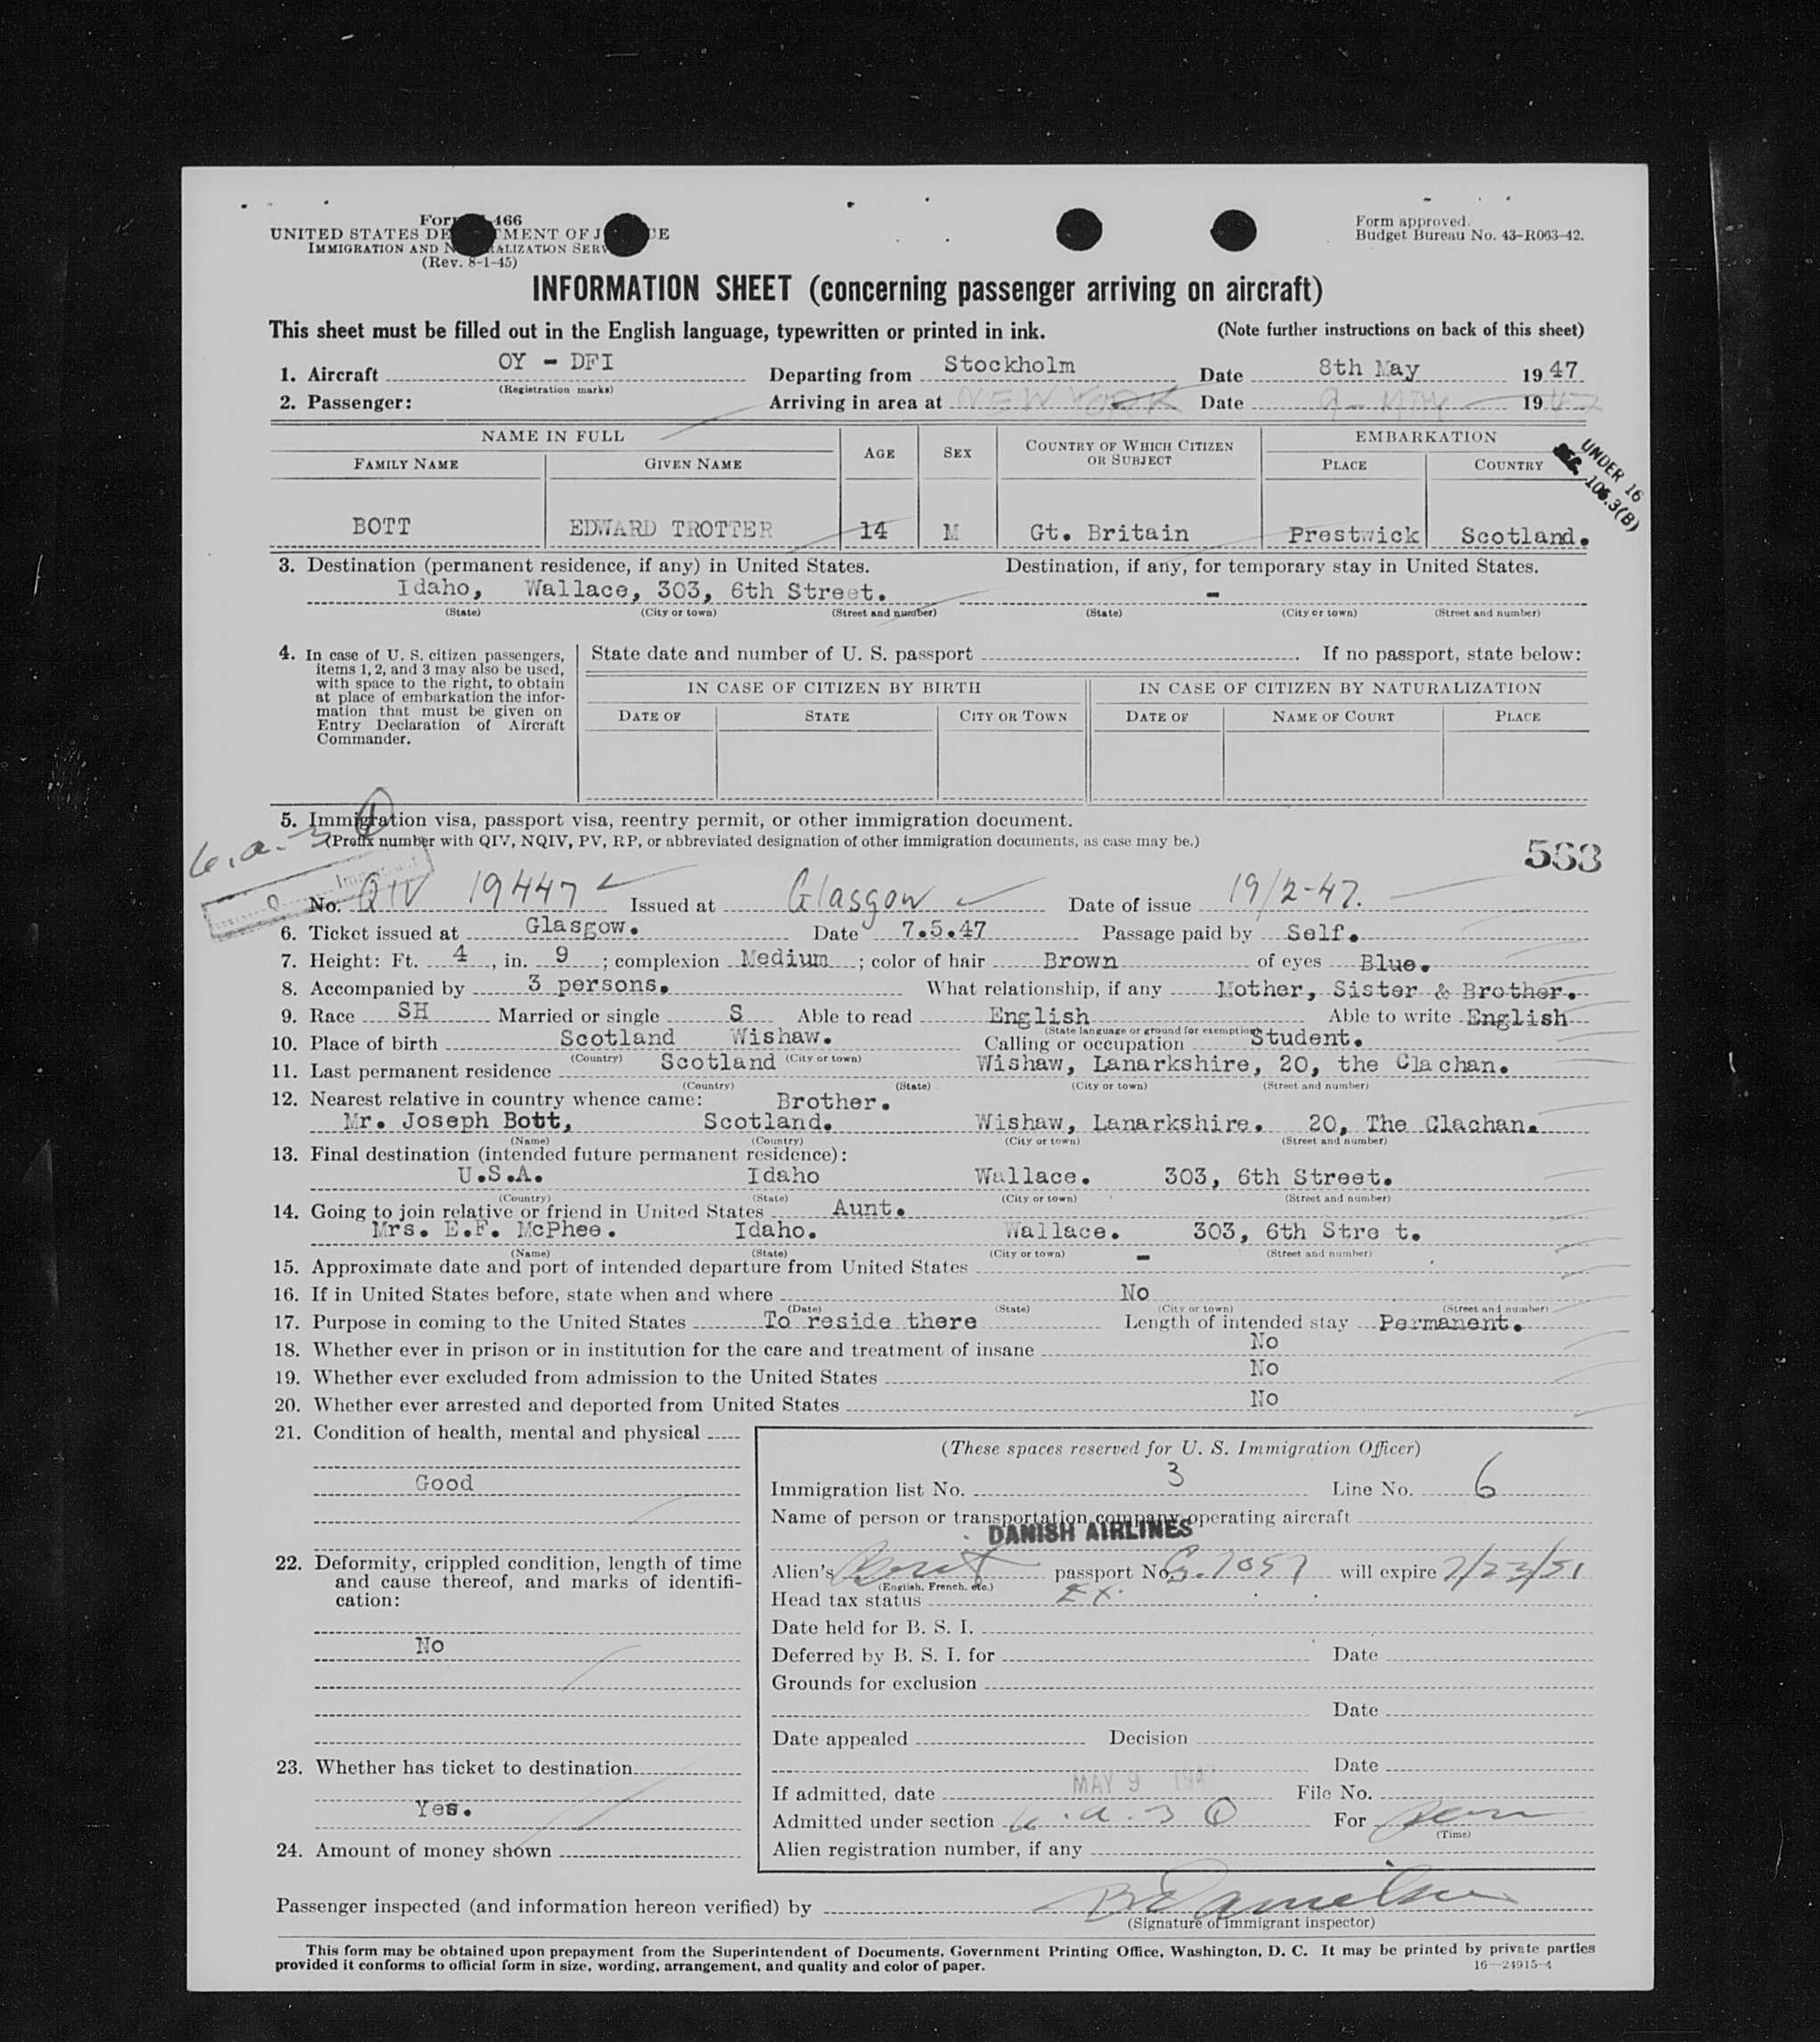 Form 466
UNITED STATES DE MENT OF J E
IMMIGRATION AND N ALIZATION SERV
(Rev. 8-1-45)
Form approved.
Budget Bureau No. 43-R063-42.
INFORMATION SHEET (concerning passenger arriving on aircraft)
This sheet must be filled out in the English language, typewritten or printed in ink. (Note further instructions on back of this sheet)
1. Aircraft OY - DFI Departing from Stockholm Date 8th May 1947
(Registration marks)
2. Passenger: Arriving in area at NEW YORK Date 9 - MAY 1947
NAME IN FULL AGE SEX COUNTRY OF WHICH CITIZEN OR SUBJECT EMBARKATION
FAMILY NAME GIVEN NAME PLACE COUNTRY
UNDER 16
SEC. 106.3(B)
BOTT EDWARD TROTTER 14 M Gt. Britain Prestwick Scotland.
3. Destination (permanent residence, if any) in United States. Destination, if any, for temporary stay in United States.
Idaho, Wallace, 303, 6th Street. -
(State) (City or town) (Street and number) (State) (City or town) (Street and number)
4. In case of U. S. citizen passengers,
items 1, 2, and 3 may also be used,
with space to the right, to obtain
at place of embarkation the infor-
mation that must be given on
Entry Declaration of Aircraft
Commander.
State date and number of U. S. passport . If no passport, state below:
IN CASE OF CITIZEN BY BIRTH IN CASE OF CITIZEN BY NATURALIZATION
DATE OF STATE CITY OR TOWN DATE OF NAME OF COURT PLACE
5. Immigration visa, passport visa, reentry permit, or other immigration document.
(Prefix number with QIV, NQIV, PV, RP, or abbreviated designation of other immigration documents, as case may be.)
6.a.3 Q
563
No. QIV 19447 Issued at Glasgow Date of issue 19/2-47.
6. Ticket issued at Glasgow. Date 7.5.47 Passage paid by Self.
7. Height: Ft. 4, in. 9; complexion Medium; color of hair Brown of eyes Blue.
8. Accompanied by 3 persons. What relationship, if any Mother, Sister & Brother.
9. Race SH Married or single S Able to read English Able to write English
(State language or ground for exemption)
10. Place of birth Scotland Wishaw. Calling or occupation Student.
(Country) (City or town)
11. Last permanent residence Scotland Wishaw, Lanarkshire, 20, the Clachan.
(Country) (State) (City or town) (Street and number)
12. Nearest relative in country whence came: Brother.
Mr. Joseph Bott, Scotland. Wishaw, Lanarkshire. 20, The Clachan.
(Name) (Country) (City or town) (Street and number)
13. Final destination (intended future permanent residence):
U.S.A. Idaho Wallace. 303, 6th Street.
(Country) (State) (City or town) (Street and number)
14. Going to join relative or friend in United States Aunt.
Mrs. E.F. McPhee. Idaho. Wallace. 303, 6th Stre t.
(Name) (State) (City or town) (Street and number)
15. Approximate date and port of intended departure from United States -
16. If in United States before, state when and where No
(Date) (State) (City or town) (Street and number)
17. Purpose in coming to the United States To reside there Length of intended stay Permanent.
18. Whether ever in prison or in institution for the care and treatment of insane No
19. Whether ever excluded from admission to the United States No
20. Whether ever arrested and deported from United States No
21. Condition of health, mental and physical
Good
22. Deformity, crippled condition, length of time
and cause thereof, and marks of identifi-
cation:
No
23. Whether has ticket to destination
Yes.
24. Amount of money shown
(These spaces reserved for U. S. Immigration Officer)
Immigration list No. 3 Line No. 6
Name of person or transportation company operating aircraft
DANISH AIRLINES
Alien's Brit passport No. will expire 2/23/51
(English, French, etc.)
Head tax status Ex.
Date held for B. S. I.
Deferred by B. S. I. for Date
Grounds for exclusion
Date
Date appealed Decision
Date
If admitted, date MAY 9 194 File No.
Admitted under section 6.a.3 Q For Perm
(Time)
Alien registration number, if any
Passenger inspected (and information hereon verified) by
(Signature of immigrant inspector)
This form may be obtained upon prepayment from the Superintendent of Documents, Government Printing Office, Washington, D. C. It may be printed by private parties
provided it conforms to official form in size, wording, arrangement, and quality and color of paper. 16—24915-4